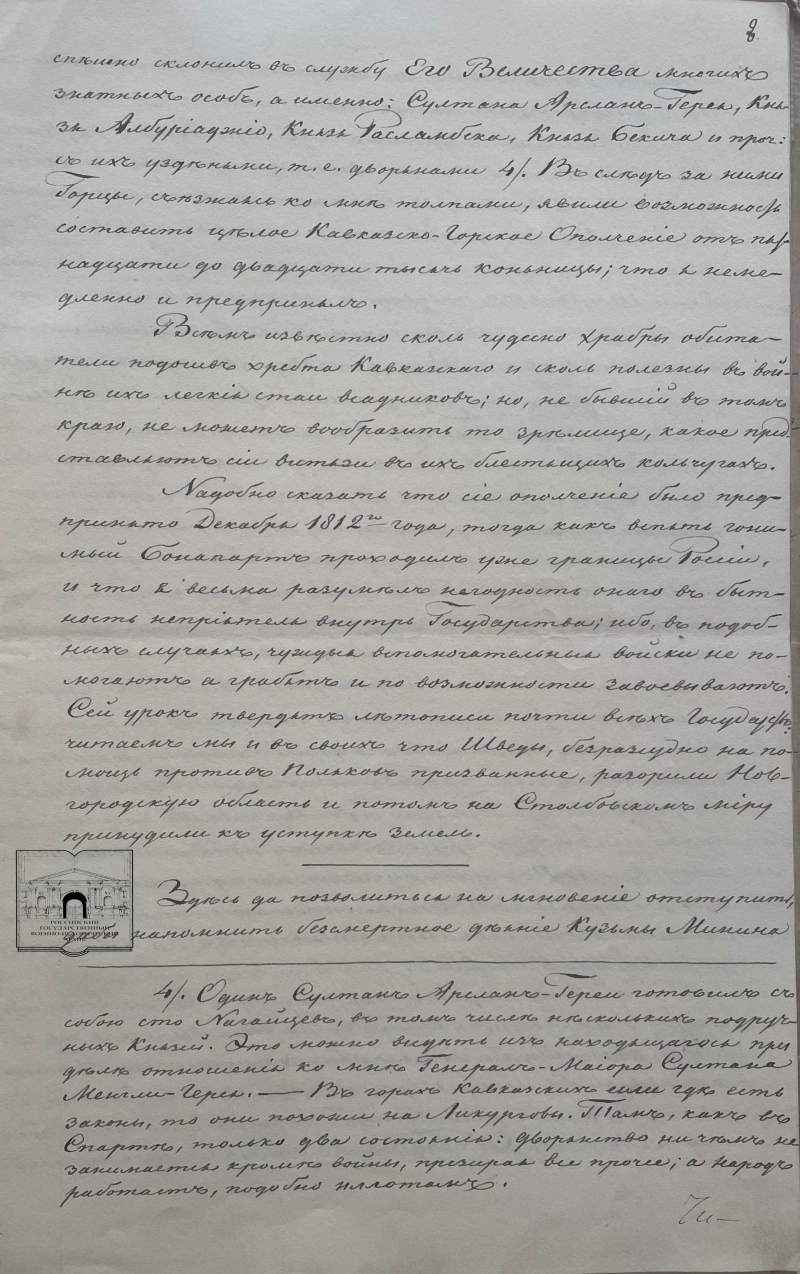 8.
спѣшно склонилъ въ службу Его Величества многихъ
знатныхъ особъ, а именно: Султана Арсланъ-Герея, Кня-
зя Албуріаджіо, Князя Расламбека, Князя Бекича и проч:
съ ихъ узденьми, т. е. дворянами 4/. Въ слѣдъ за ними
Горцы, съѣзжаясь ко мнѣ толпами, явили возможность
составить цѣлое Кавказско-Горское Ополченіе отъ пят-
надцати до двадцати тысячь конницы; что я неме-
дленно и предпринялъ.
Всѣмъ извѣстно сколь чудесно храбры обита-
тели подошвъ хребта Кавказскаго и сколь полезны въ вой-
нѣ ихъ легкія стаи всадниковъ; но, не бывшій въ томъ
краю, не можетъ вообразить то зрѣлище, какое пред-
ставляютъ сіи витязи въ ихъ блестящихъ кольчугахъ.
Надобно сказать что сіе ополченіе было пред-
принято Декабря 1812го года, тогда какъ вспять гони-
мый Бонапартъ проходилъ уже границы Россіи,
и что я весьма разумѣлъ негодность онаго въ быт-
ность непріятеля внутрь Государства; ибо, въ подоб-
ныхъ случаяхъ, чуждыя вспомогательныя войски не по-
могаютъ а грабятъ и по возможности завоевываютъ.
Сей урокъ твердятъ лѣтописи почти всѣхъ Государствъ:
читаемъ мы и въ своихъ что Шведы, безразсудно на по-
мощь противъ Поляковъ призванные, разорили Нов-
городскую область и потомъ на Столбовскомъ міру
принудили къ уступкѣ земель.
Здѣсь да позволиться на мгновеніе отступить,
дабы напомнить безсмертное дѣяніе Кузьмы Минина
РОССИЙСКИЙ
ГОСУДАРСТВЕННЫЙ
ВОЕННО-ИСТОРИЧЕСКИЙ
АРХИВ
4/. Одинъ Султанъ Арсланъ-Герей готовилъ съ
собою сто Нагайцевъ, въ томъ числѣ нѣсколькихъ подруч-
ныхъ Князей. Это можно видѣть изъ находящагося при
дѣлѣ отношенія ко мнѣ Генералъ-Маіора Султана
Менгли-Герея. — Въ горахъ Кавказскихъ если гдѣ есть
законы, то они похожи на Ликурговы. Тамъ, какъ въ
Спартѣ, только два состоянія: дворянство ни чѣмъ не
занимается кромѣ войны, презирая все прочее; а народъ
работаетъ, подобно иллотамъ.